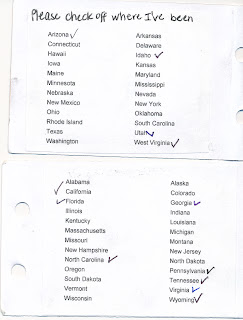 Please check off where I've been
Arizona ✓ Arkansas
Connecticut Delaware
Hawaii Idaho ✓
Iowa Kansas
Maine Maryland
Minnesota Mississippi
Nebraska Nevada
New Mexico New York
Ohio Oklahoma
Rhode Island South Carolina
Texas Utah ✓
Washington West Virginia ✓
Alabama Alaska
✓ California Colorado
✓ Florida Georgia ✓
Illinois Indiana
Kentucky Louisiana
Massachusetts Michigan
Missouri Montana
New Hampshire New Jersey
North Carolina ✓ North Dakota
Oregon Pennsylvania ✓
South Dakota Tennessee ✓
Vermont Virginia ✓
Wisconsin Wyoming ✓